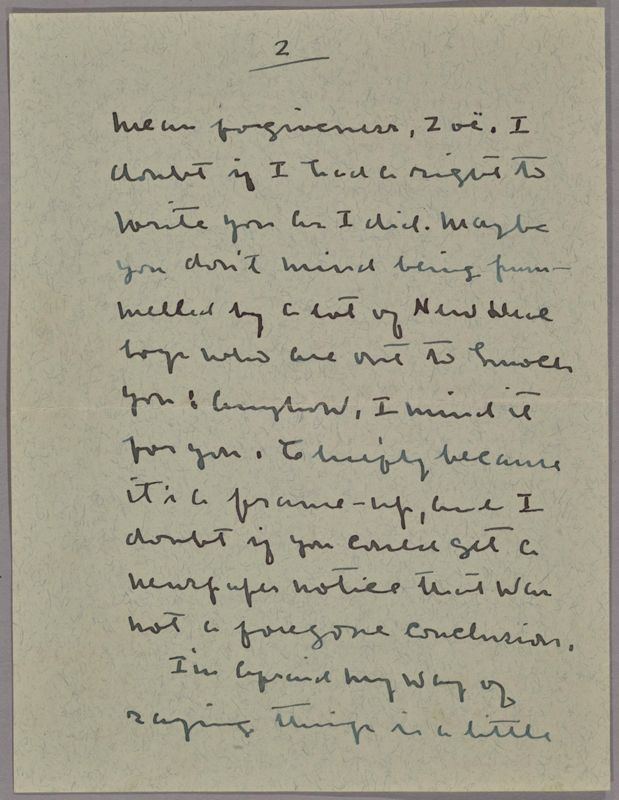 2
mean forgiveness, Zoë. I
doubt if I had a right to
write you as I did. Maybe
you don't mind being pum-
melled by a lot of New Deal
boys who are out to smash
you; anyhow, I mind it
for you. Chiefly because
it's a frame-up, and I
doubt if you could get a
newspaper notice that was
not a foregone conclusion.
I'm afraid my way of
saying things is a little